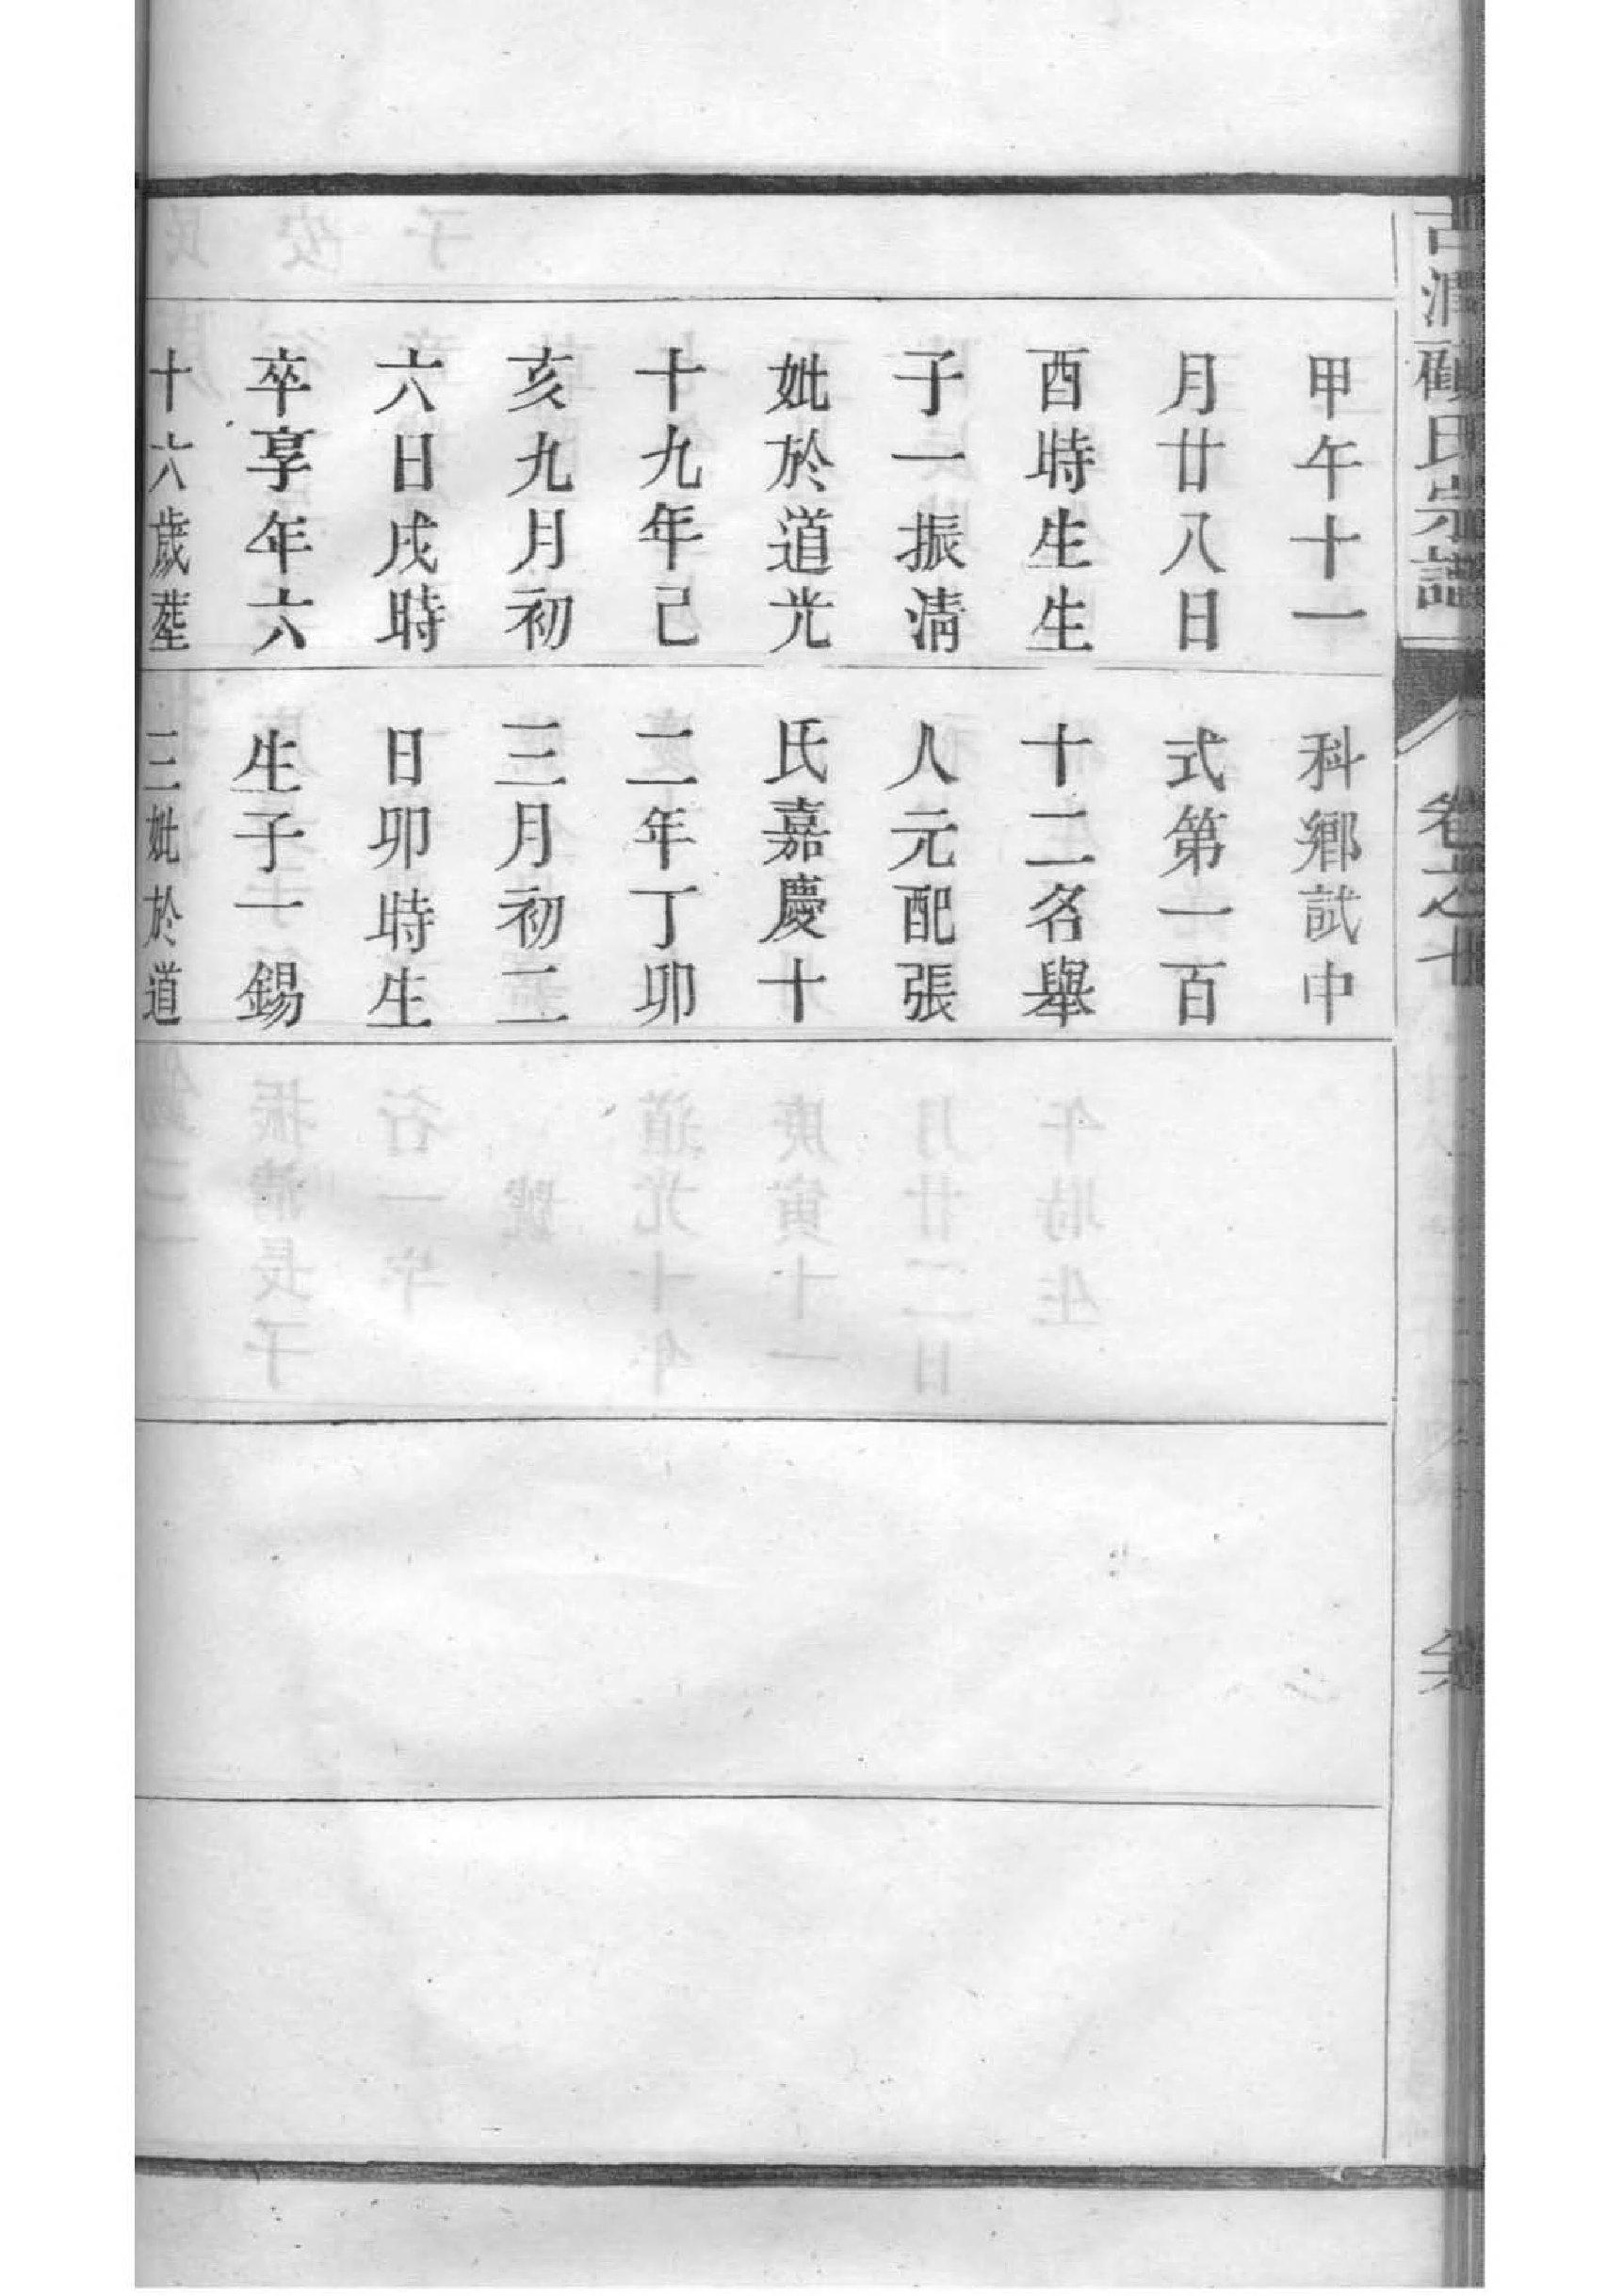 古潤顧氏宗譜
卷之七
甲午十一
月廿八日
酉時生生
子一振淸
妣於道光
十九年己
亥九月初
六日戌時
卒享年六
十六歲塟
科鄉試中
式第一百
十二名舉
人元配張
氏嘉慶十
二年丁卯
三月初二
日卯時生
生子一錫
三妣於道